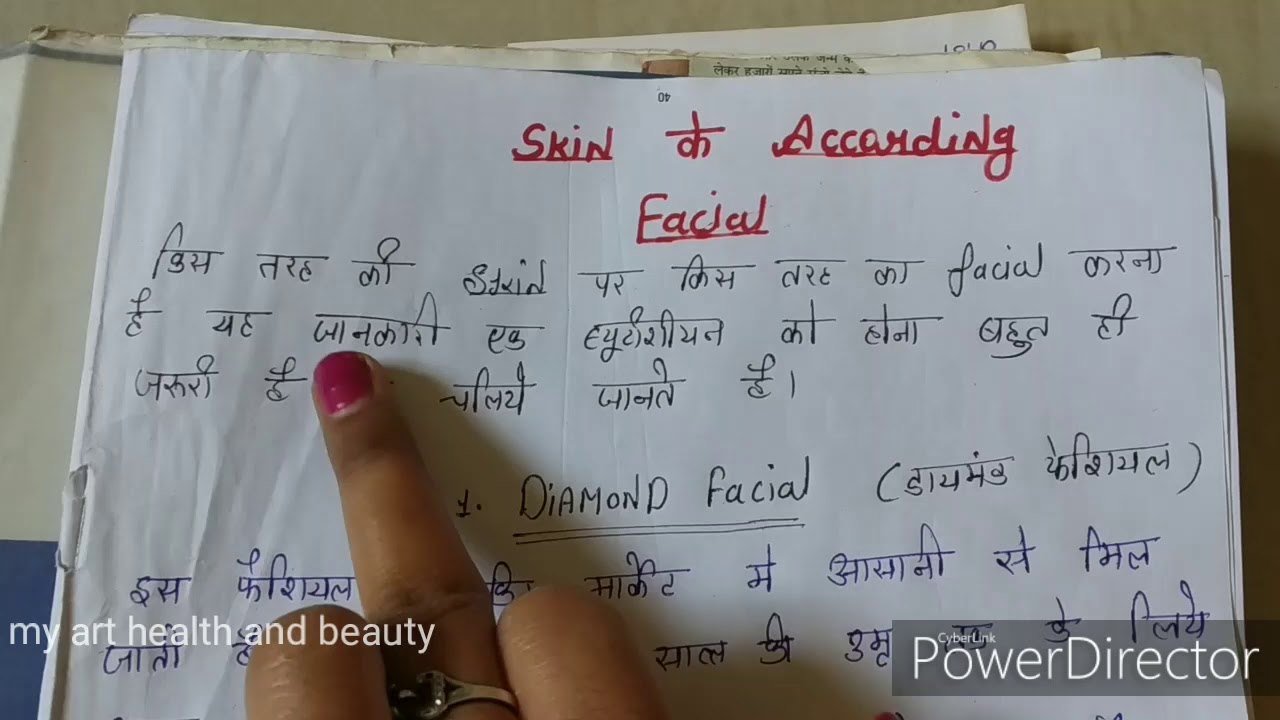 लेकर हजारों सपने
40
Skin के According
Facial
किस तरह की Skin पर किस तरह का facial करना
है यह जानकारी एक ब्यूटीशीयन को होना बहुत ही
जरूरी है चलिये जानते है।
1. DIAMOND Facial (डायमंड फेशियल)
इस फैशियल कि मार्केट मे आसानी से मिल
जाती है साल की उम्र तक के लिये
my art health and beauty
CyberLink
PowerDirector